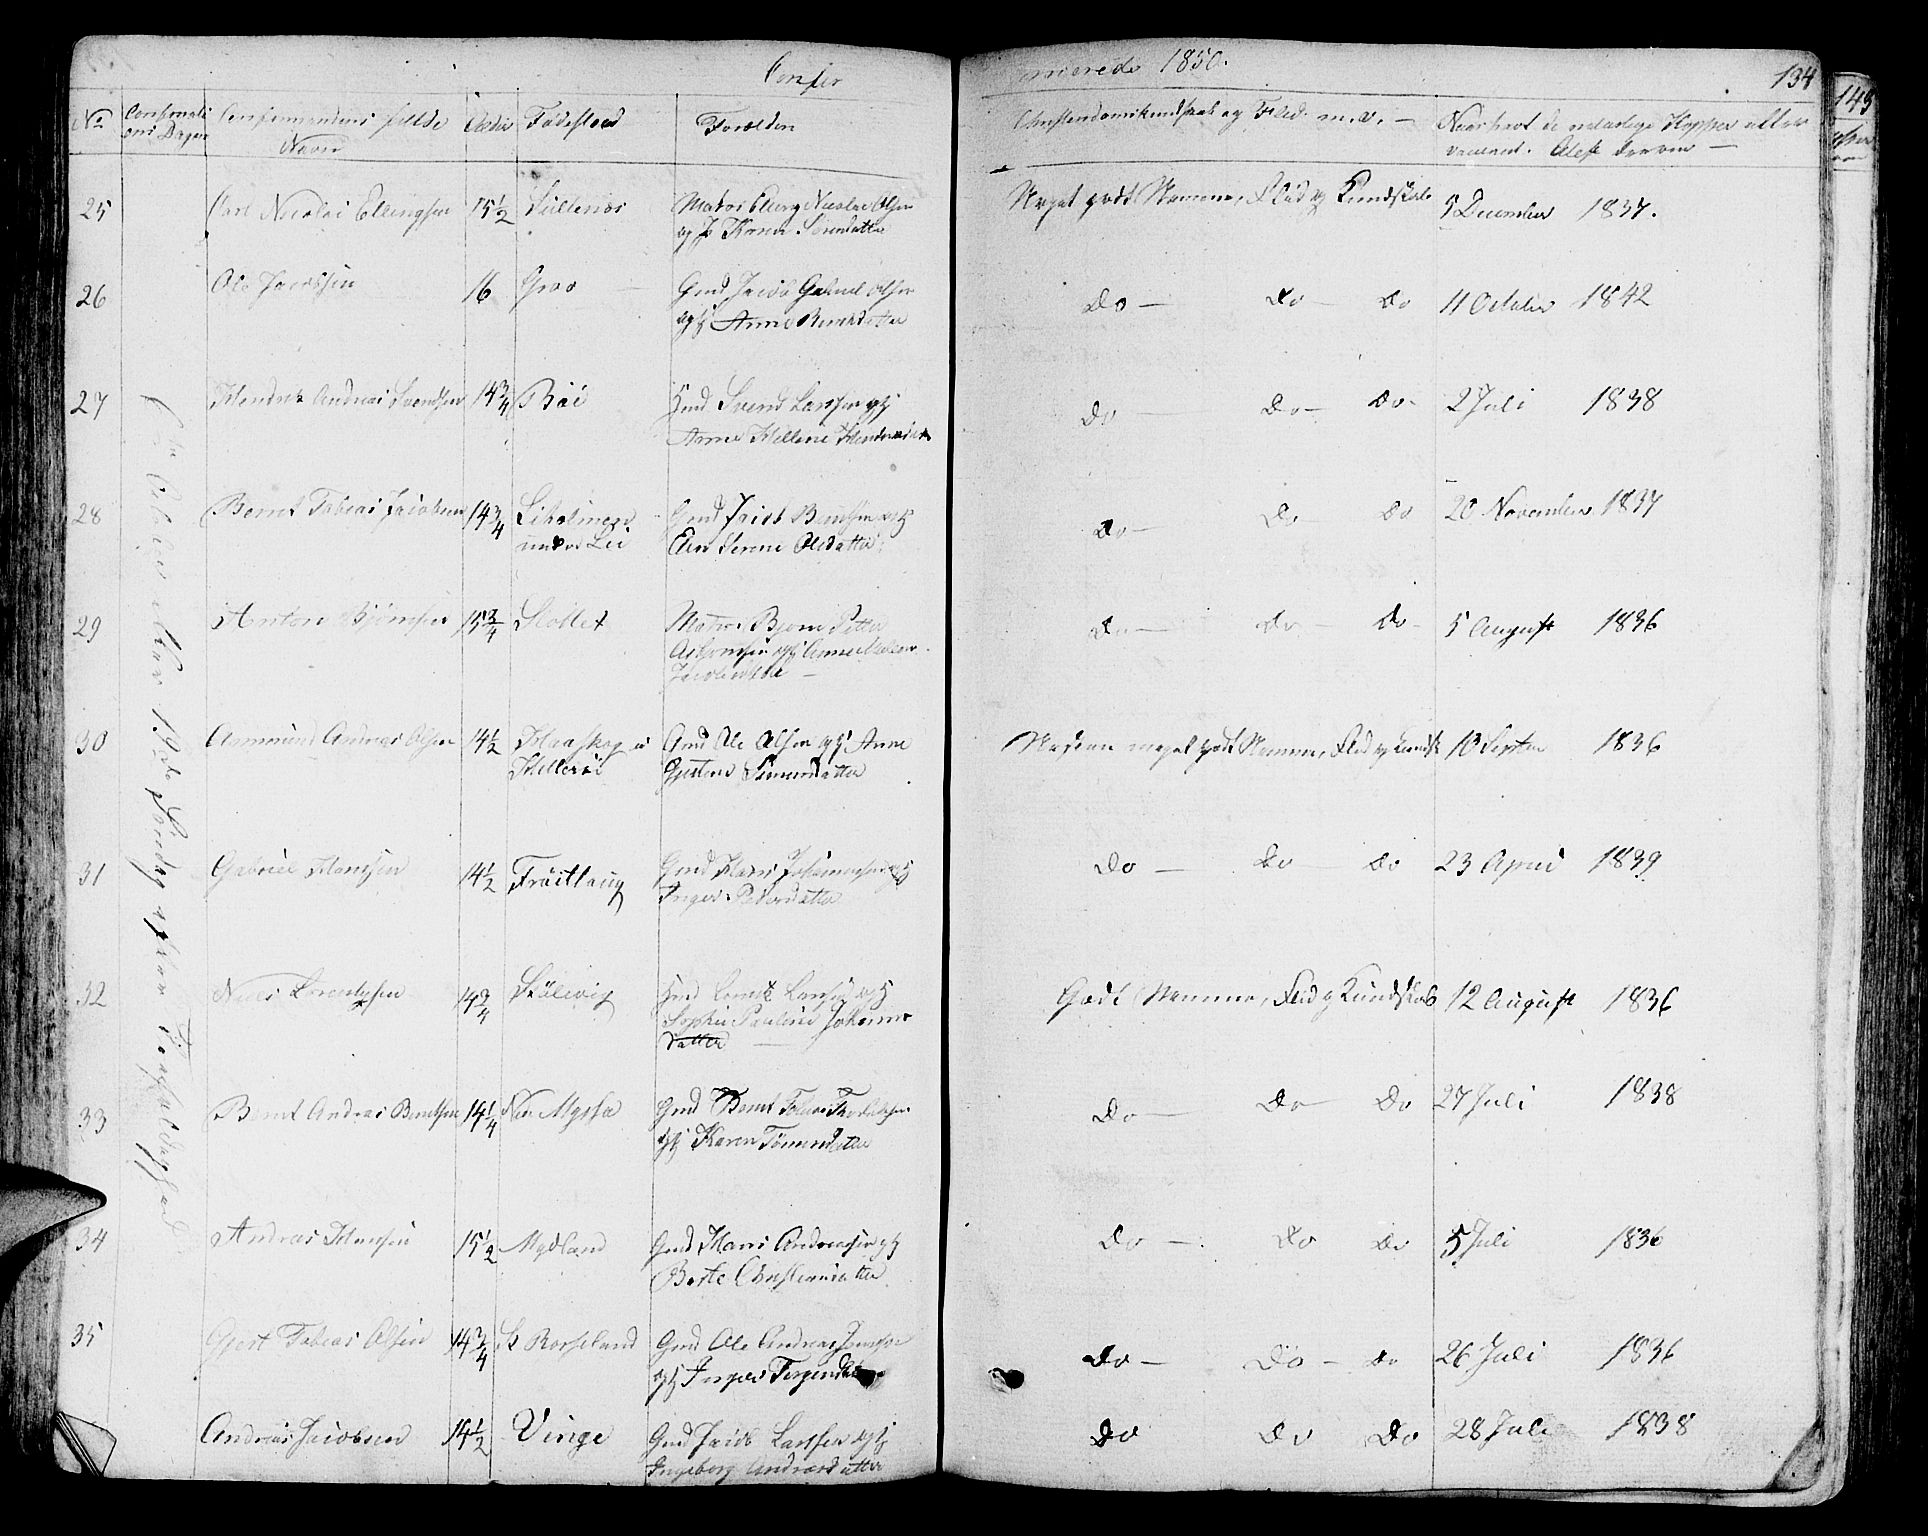 Confir
merede 1850.
134
149
No
Confirmati
ons Dagen
Confirmandens fulde
Navn
Alder
Fødested
Forældre
Christendomskundskab og Flid m. v. —
Naar havt de naturlige Kopper eller
vaccineret. Attest derom —
6te October eller 19de Søndag efter Trefoldighed
25 Carl Nicolai Ellingsen 15½ Lillenæs Matros Elling Nicolai Olsen Meget godt Nemme, Flid og Kundskab 5 December 1837.
og H Karen Sørensdatter
26 Ole Jacobsen 16 Groo Gmd Jacob Gabriel Olsen Do — Do — Do 11 October 1842
og H Anne Berntsdatter
27 Hendrik Andreas Svendsen 14¾ Bøi Hmd Svend Larsen og H Do Do — Do — 2 Juli 1838
Anne Hellene Hendriksdatter
28 Bernt Tobias Jacobsen 14¾ Liholmen Gmd Jacob Berntsen og H Do — Do Do 20 November 1837
under Lei
Elen Serine Olsdatter
29 Anton Bjørnsen 15¾ Slottet Matros Bjørn Petter Do — Do — Do — 5 August 1836
og H Anne
Jacobsdatter —
30 Ammund Andreas Olsen 14½ Haaskog i Gmd Ole Olsen og H Anne Næsten meget godt Nemme, Flid og Kundsk 10 Septbr 1836
Hellersøi
Gjertine Simonsdatter
31 Gabriel Hansen 14½ Frøitlaug Gmd Hans Johannesen og H Do — Do Do 23 April 1839
Inger Pedersdatter
32 Niels Lorentzsen 14¾ Skålevig Hmd Lorentz Larsen og H Godt Nemme, Flid og Kundskab 12 August 1836
Sophie Pauline Johannes
datter
33 Bernt Andreas Berntsen 14¼ Nr. Mysse Gmd Bernt Tobias Do — Do — Do 27 Juli 1838
og H Karen Tønnesdatter
34 Andreas Hansen 15½ Mydland Gmd Hans Andreassen og H Do — Do Do 5 Juli 1836
Berte Christensdatter
35 Gjert Tobias Olsen 14¾ St Rosseland Gmd Ole Andreas Jensen Do — Do — Do 26 Juli 1836
og H Inger Torgersdatter
Andreas Jacobsen 14½ Vinge Gmd Jacob Larsen og H Do Do Do 28 Juli 1838
Ingeborg Andreasdatter